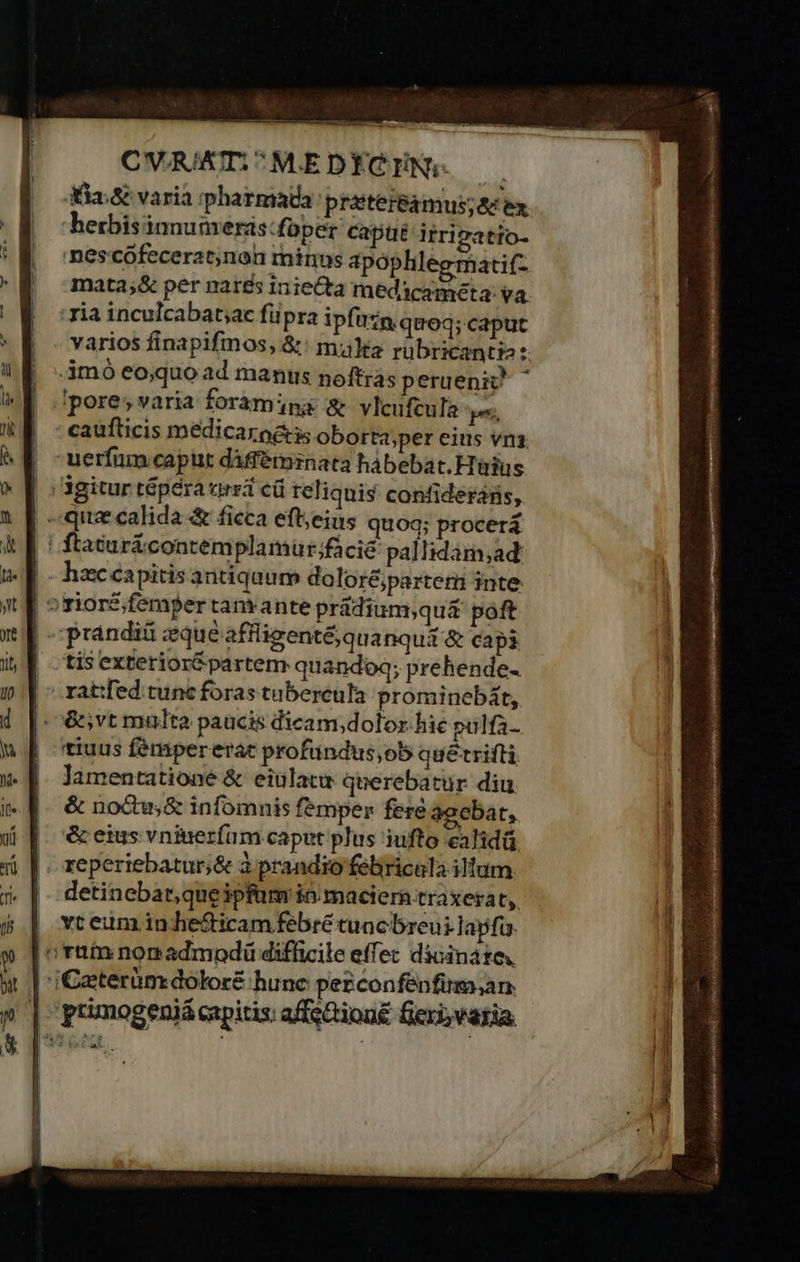 CVRAT. MEDICIN.
tia & varia pharmaca prætereamus, & ex
herbis innumeras super caput irrigatio-
nes cōfecerat, non minus apophlegmatis-
mata, & per nares iniecta medicamēta va
ria inculcabat, ac supra ipsum quoq; caput
varios sinapismos, & multa rubricantia:
imò eo, quo ad manus nostras peruenit
pore, varia foramina & vlcuscula
causticis medicamētis oborta, per eius vni
uersum caput disseminata habebat. Huius
igitur tēperaturā cū reliquis considerans,
quæ calida & sicca est, eius quoq; procerā
staturā contemplamur, faciē pallidam, ad
hæc capitis antiquum dolorē, partem inte
riorē, semper tam ante prādium, quā post
prandiū æque affligentē, quanquā & capi
tis exteriorē partem quandoq; prehende-
rat: sed tunc foras tubercula prominebāt,
&, vt multa paucis dicam, dolor hic pulsa-
tiuus semper erat profundus, ob quē tristi
lamentatione & eiulatu querebatur diu
& noctu, & insomnis semper fere agebat,
& eius vniuersum caput plus iusto calidū
reperiebatur, & à prandio febricula illum
detinebat, que ipsum in maciem traxerat,
vt eum in hecticam febrē tunc breui lapsu
rum non admodū difficile esset diuinare.
Cæterùm dolorē hunc per consensum, an
primogeniā capitis affectionē fieri, varia